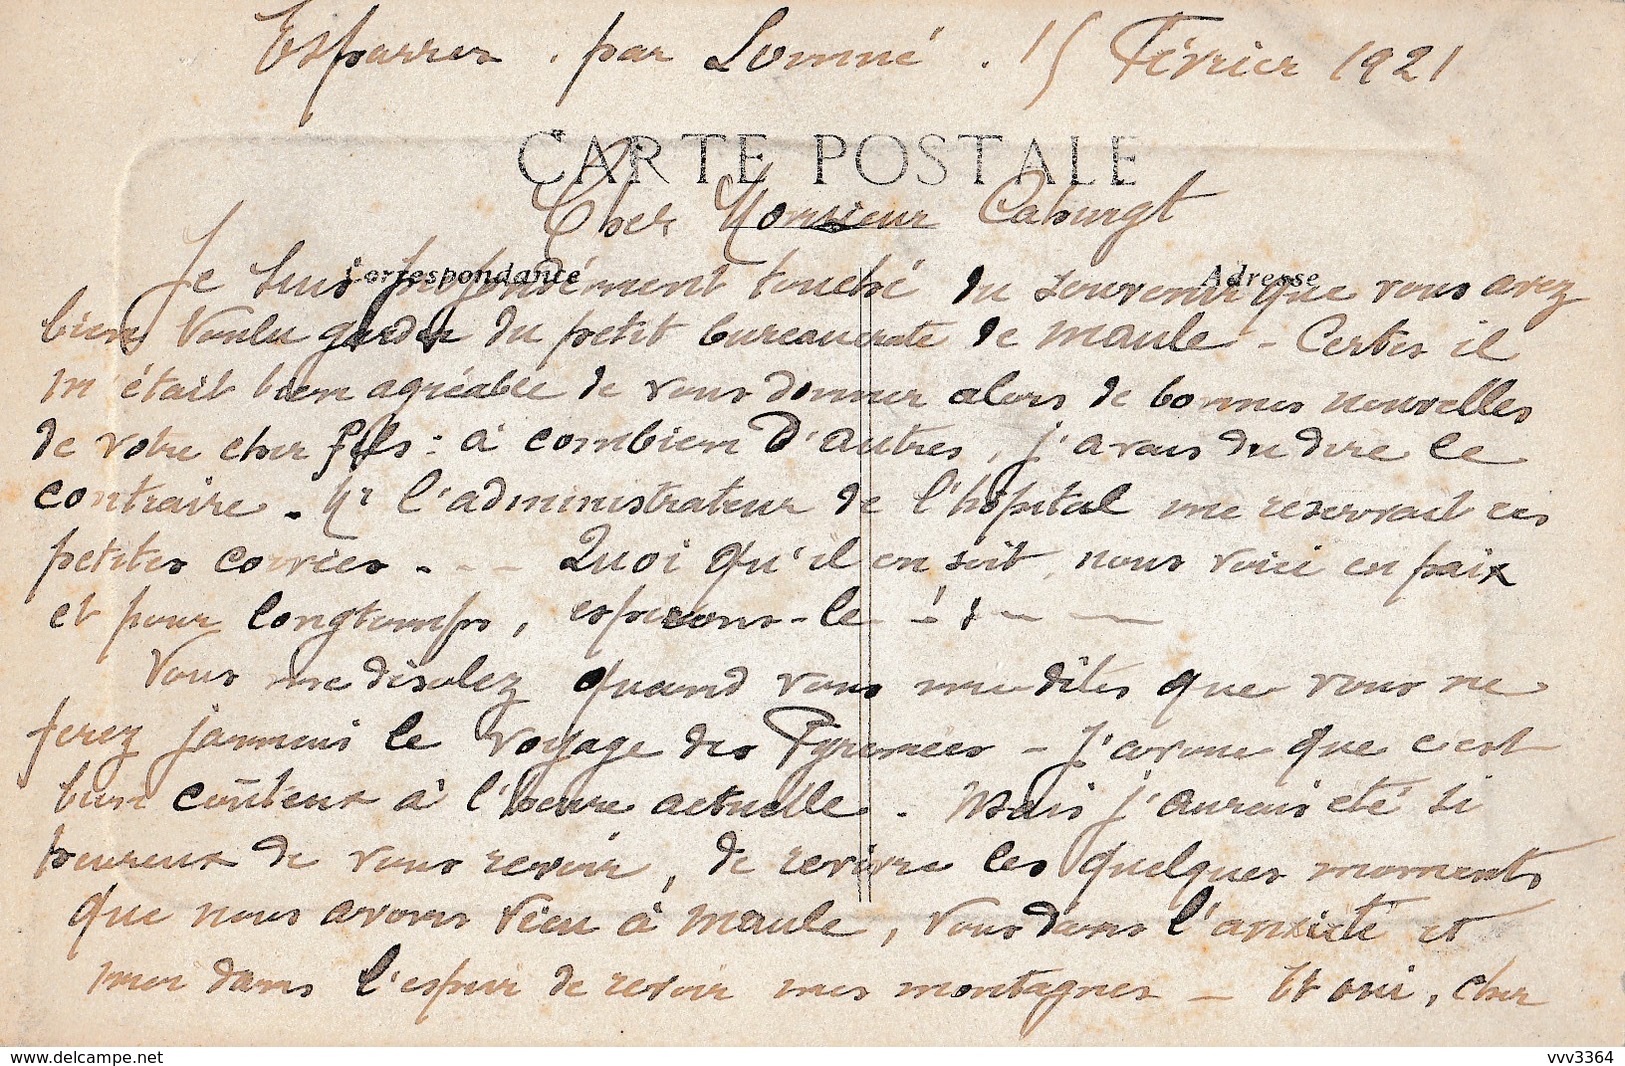 Esparros . par Lomné . 15 Février 1921
CARTE POSTALE
Cher Monsieur
Correspondance
Adresse
Je suis profondément touché du souvenir que vous avez
bien voulu garder du petit bureaucrate de Maule - Certes il
m'était bien agréable de vous donner alors de bonnes nouvelles
de votre cher fils : à combien d'autres, j'avais du dire le
contraire . Mr l'administrateur de l'hôpital me reservait ces
petites corvées . - - Quoi qu'il en soit, nous voici en paix
et pour longtemps, espérons-le !
Vous me désolez quand vous me dites que vous ne
ferez jammais le voyage des Pyrenées - J'avoue que c'est
bien coûteux à l'heure actuelle . Mais j'aurais été si
heureux de vous revoir, de revivre les quelques moments
que nous avons vécu à Maule, vous dans l'anxiété et
moi dans l'espoir de revoir mes montagnes - Et oui, cher
delcampe.net
vvv3364